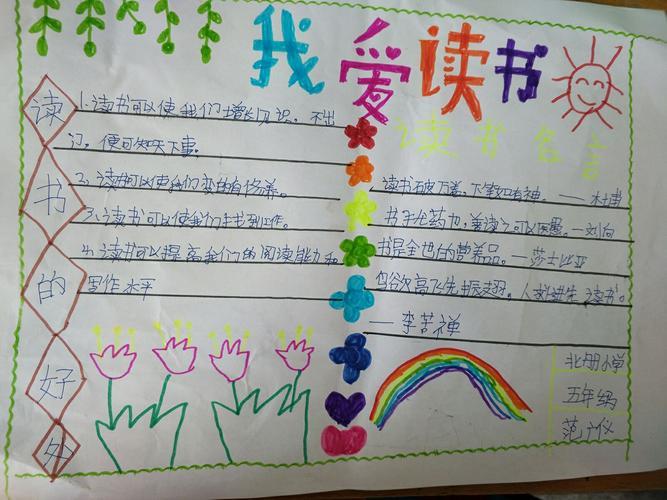 我爱读书
读书的好处
1.读书可以使我们增长见识。不出
门，便可知天下事。
2、读书可以使我们变的有修养。
3、读书可以使我们找到工作。
4、读书可以提高我们的阅读能力和
写作水平
读书名言
读书破万卷，下笔如有神。——杜甫
书犹药也，善读之可以医愚。—刘向
书是全世的营养品。—莎士比亚
鸟欲高飞先振翅。人求进先读书。
——李苦禅
北册小学
五年级
范 仪